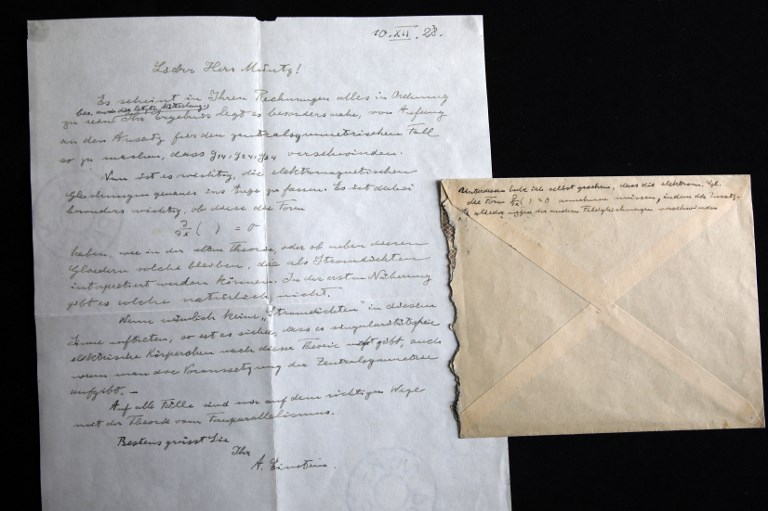 10.XII.28.
Lieber Herr Müntz!
Es scheint in Ihren Rechnungen alles in Ordnung
bes. auch die letzte Mitteilung
zu sein. Ihr Ergebnis legt es besonders nahe, von Anfang
an den Ansatz für den zentralsymmetrischen Fall
so zu machen, dass g14, g24, g34 verschwinden.
Nun ist es wichtig, die elektromagnetischen
Gleichungen genauer ins Auge zu fassen. Es ist dabei
besonders wichtig, ob diese die Form
∂/∂x ( ) = 0
haben, wie in der alten Theorie, oder ob neben diesen
Gliedern solche bleiben, die als Stromdichten
interpretiert werden können. In der ersten Näherung
gibt es solche natürlich nicht.
Wenn nämlich keine „Stromdichten" in diesem
Sinne auftreten, so ist es sicher, dass es singularitätsfreie
elektrische Körperchen nach dieser Theorie nicht gibt, auch
wenn man die Voraussetzung der Zentralsymmetrie
aufgibt. —
Auf alle Fälle sind wir auf dem richtigen Wege
mit der Theorie vom Fernparallelismus.
Bestens grüsst Sie
Ihr
A. Einstein.
Unterdessen habe ich selbst gesehen, dass die elektrom. Gl.
die Form ∂/∂x ( ) = 0 annehmen müssen, indem die Zusatz-
glieder wegen der anderen Feldgleichungen verschwinden